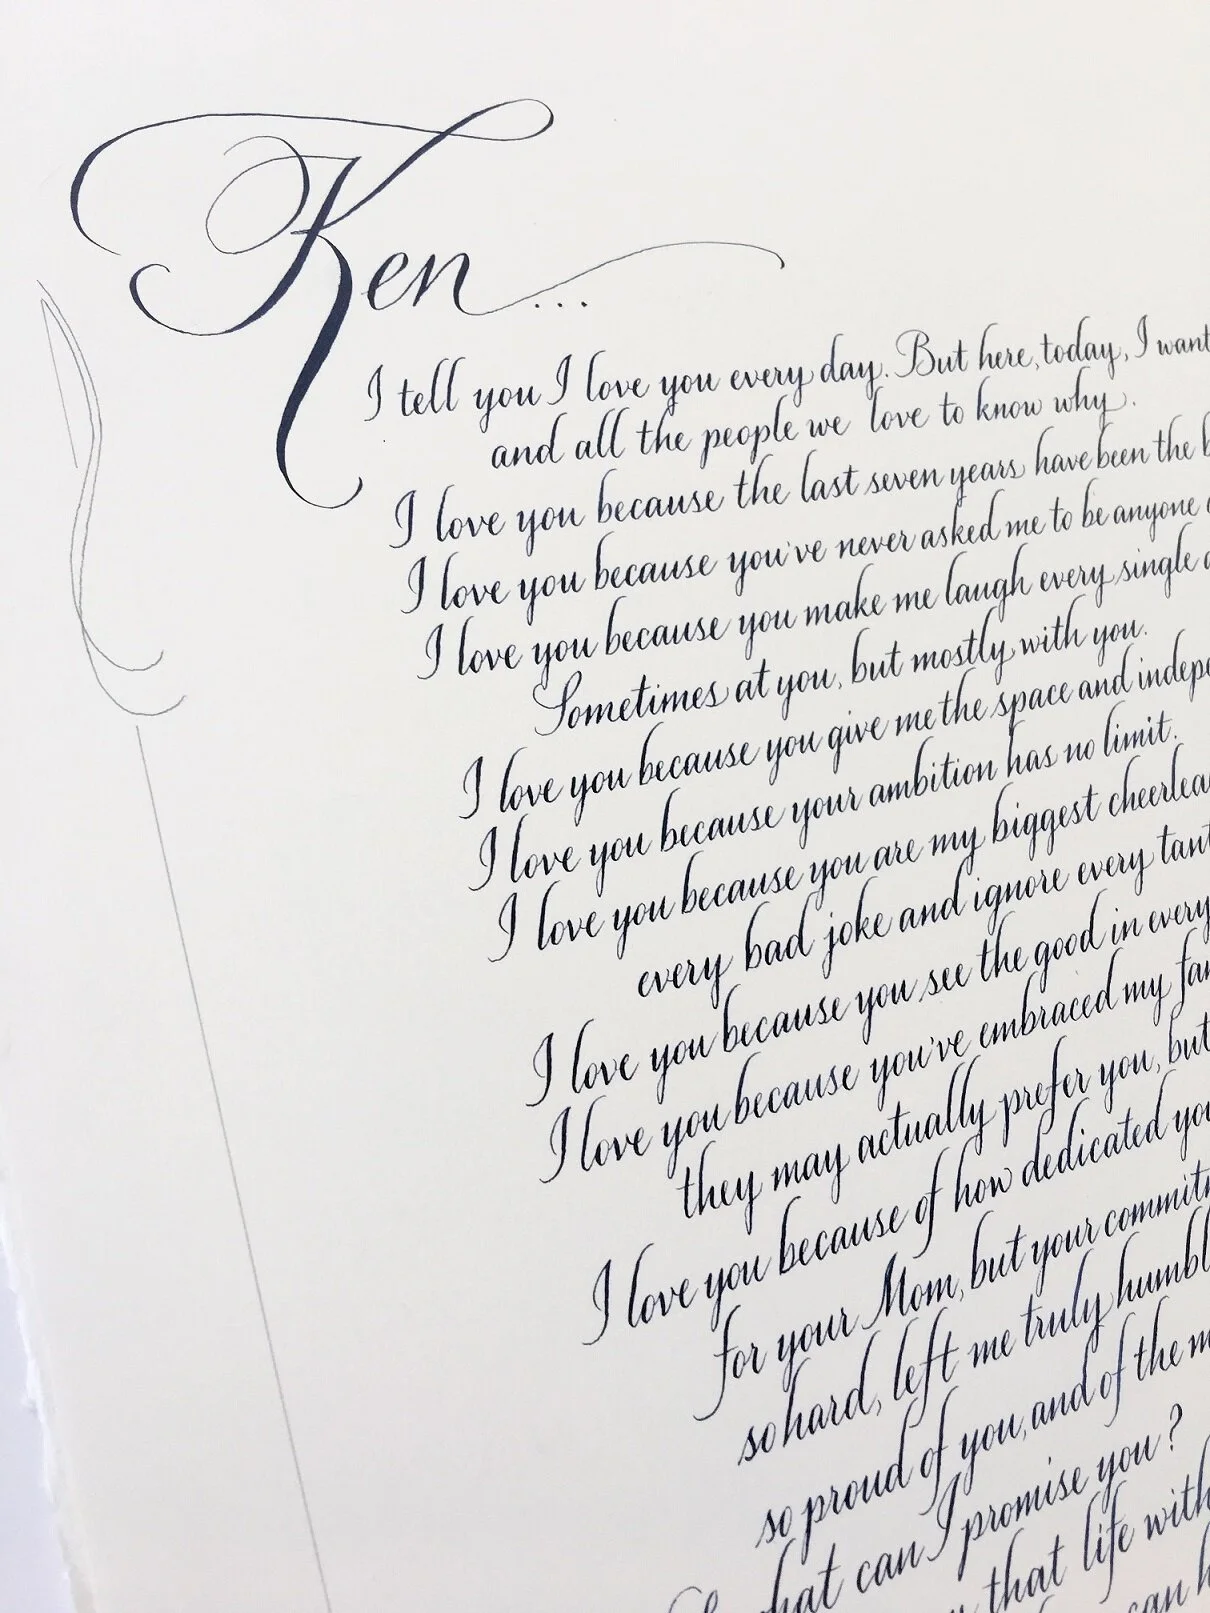 Ken...
I tell you I love you every day. But here, today, I want
and all the people we love to know why.
I love you because the last seven years have been the b
I love you because you've never asked me to be anyone
I love you because you make me laugh every single
Sometimes at you, but mostly with you.
I love you because you give me the space and indepe
I love you because your ambition has no limit.
I love you because you are my biggest cheerlea
every bad joke and ignore every tant
I love you because you see the good in every
I love you because you've embraced my fam
they may actually prefer you, but
I love you because of how dedicated you
for your Mom, but your commitm
so hard, left me truly humbl
so proud of you, and of the m
what can I promise you?
that life with
can h